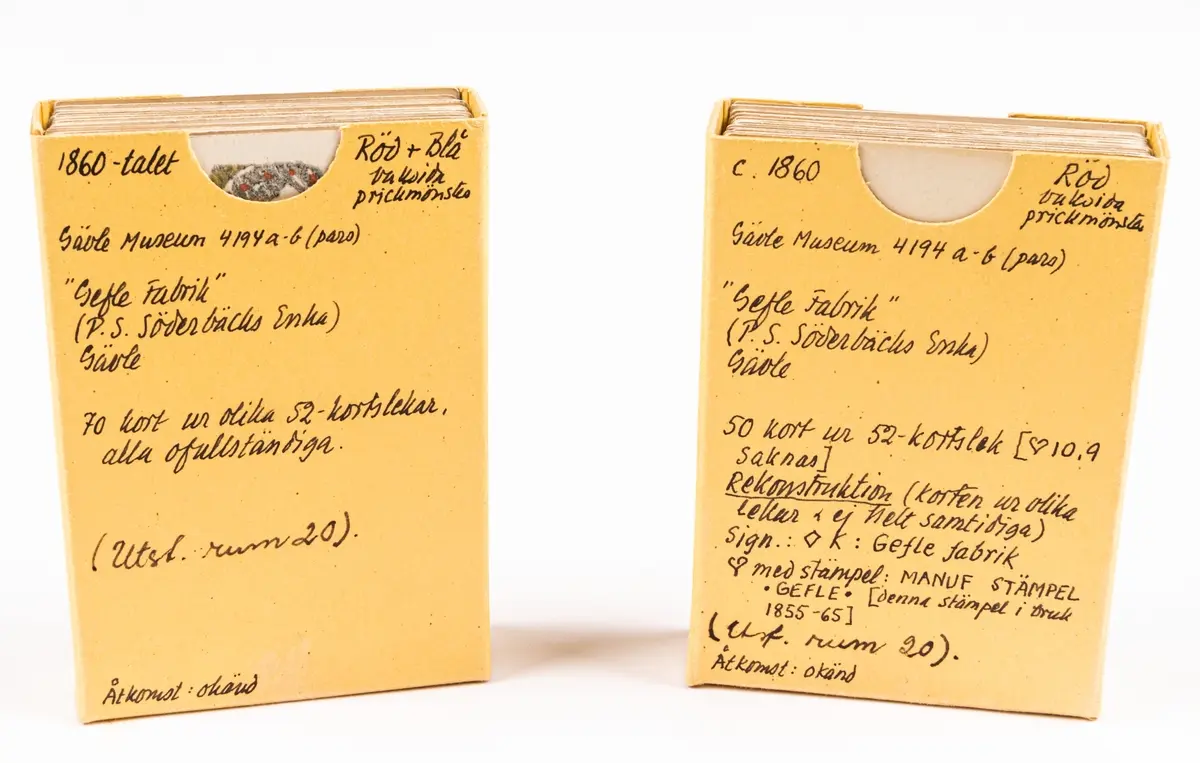 1860-talet
Röd + Blå
baksida
prickmönster
Gävle Museum 4194 a-b (pars)
"Gefle Fabrik"
(P.S. Söderbäcks Enka)
Gävle
70 kort ur olika 52-kortslekar,
alla ofullständiga.
(Utst. rum 20).
Åtkomst: okänd
c. 1860
Röd
baksida
prickmönster
Gävle Museum 4194 a-b (pars)
"Gefle Fabrik"
(P.S. Söderbäcks Enka)
Gävle
50 kort ur 52-kortslek [♡ 10, 9
saknas]
Rekonstruktion (korten ur olika
lekar & ej helt samtidiga)
Sign.: ♢ K : Gefle fabrik
♡ med stämpel: MANUF STÄMPEL
• GEFLE • [denna stämpel i bruk
1855-65]
(Utst. rum 20).
Åtkomst: okänd